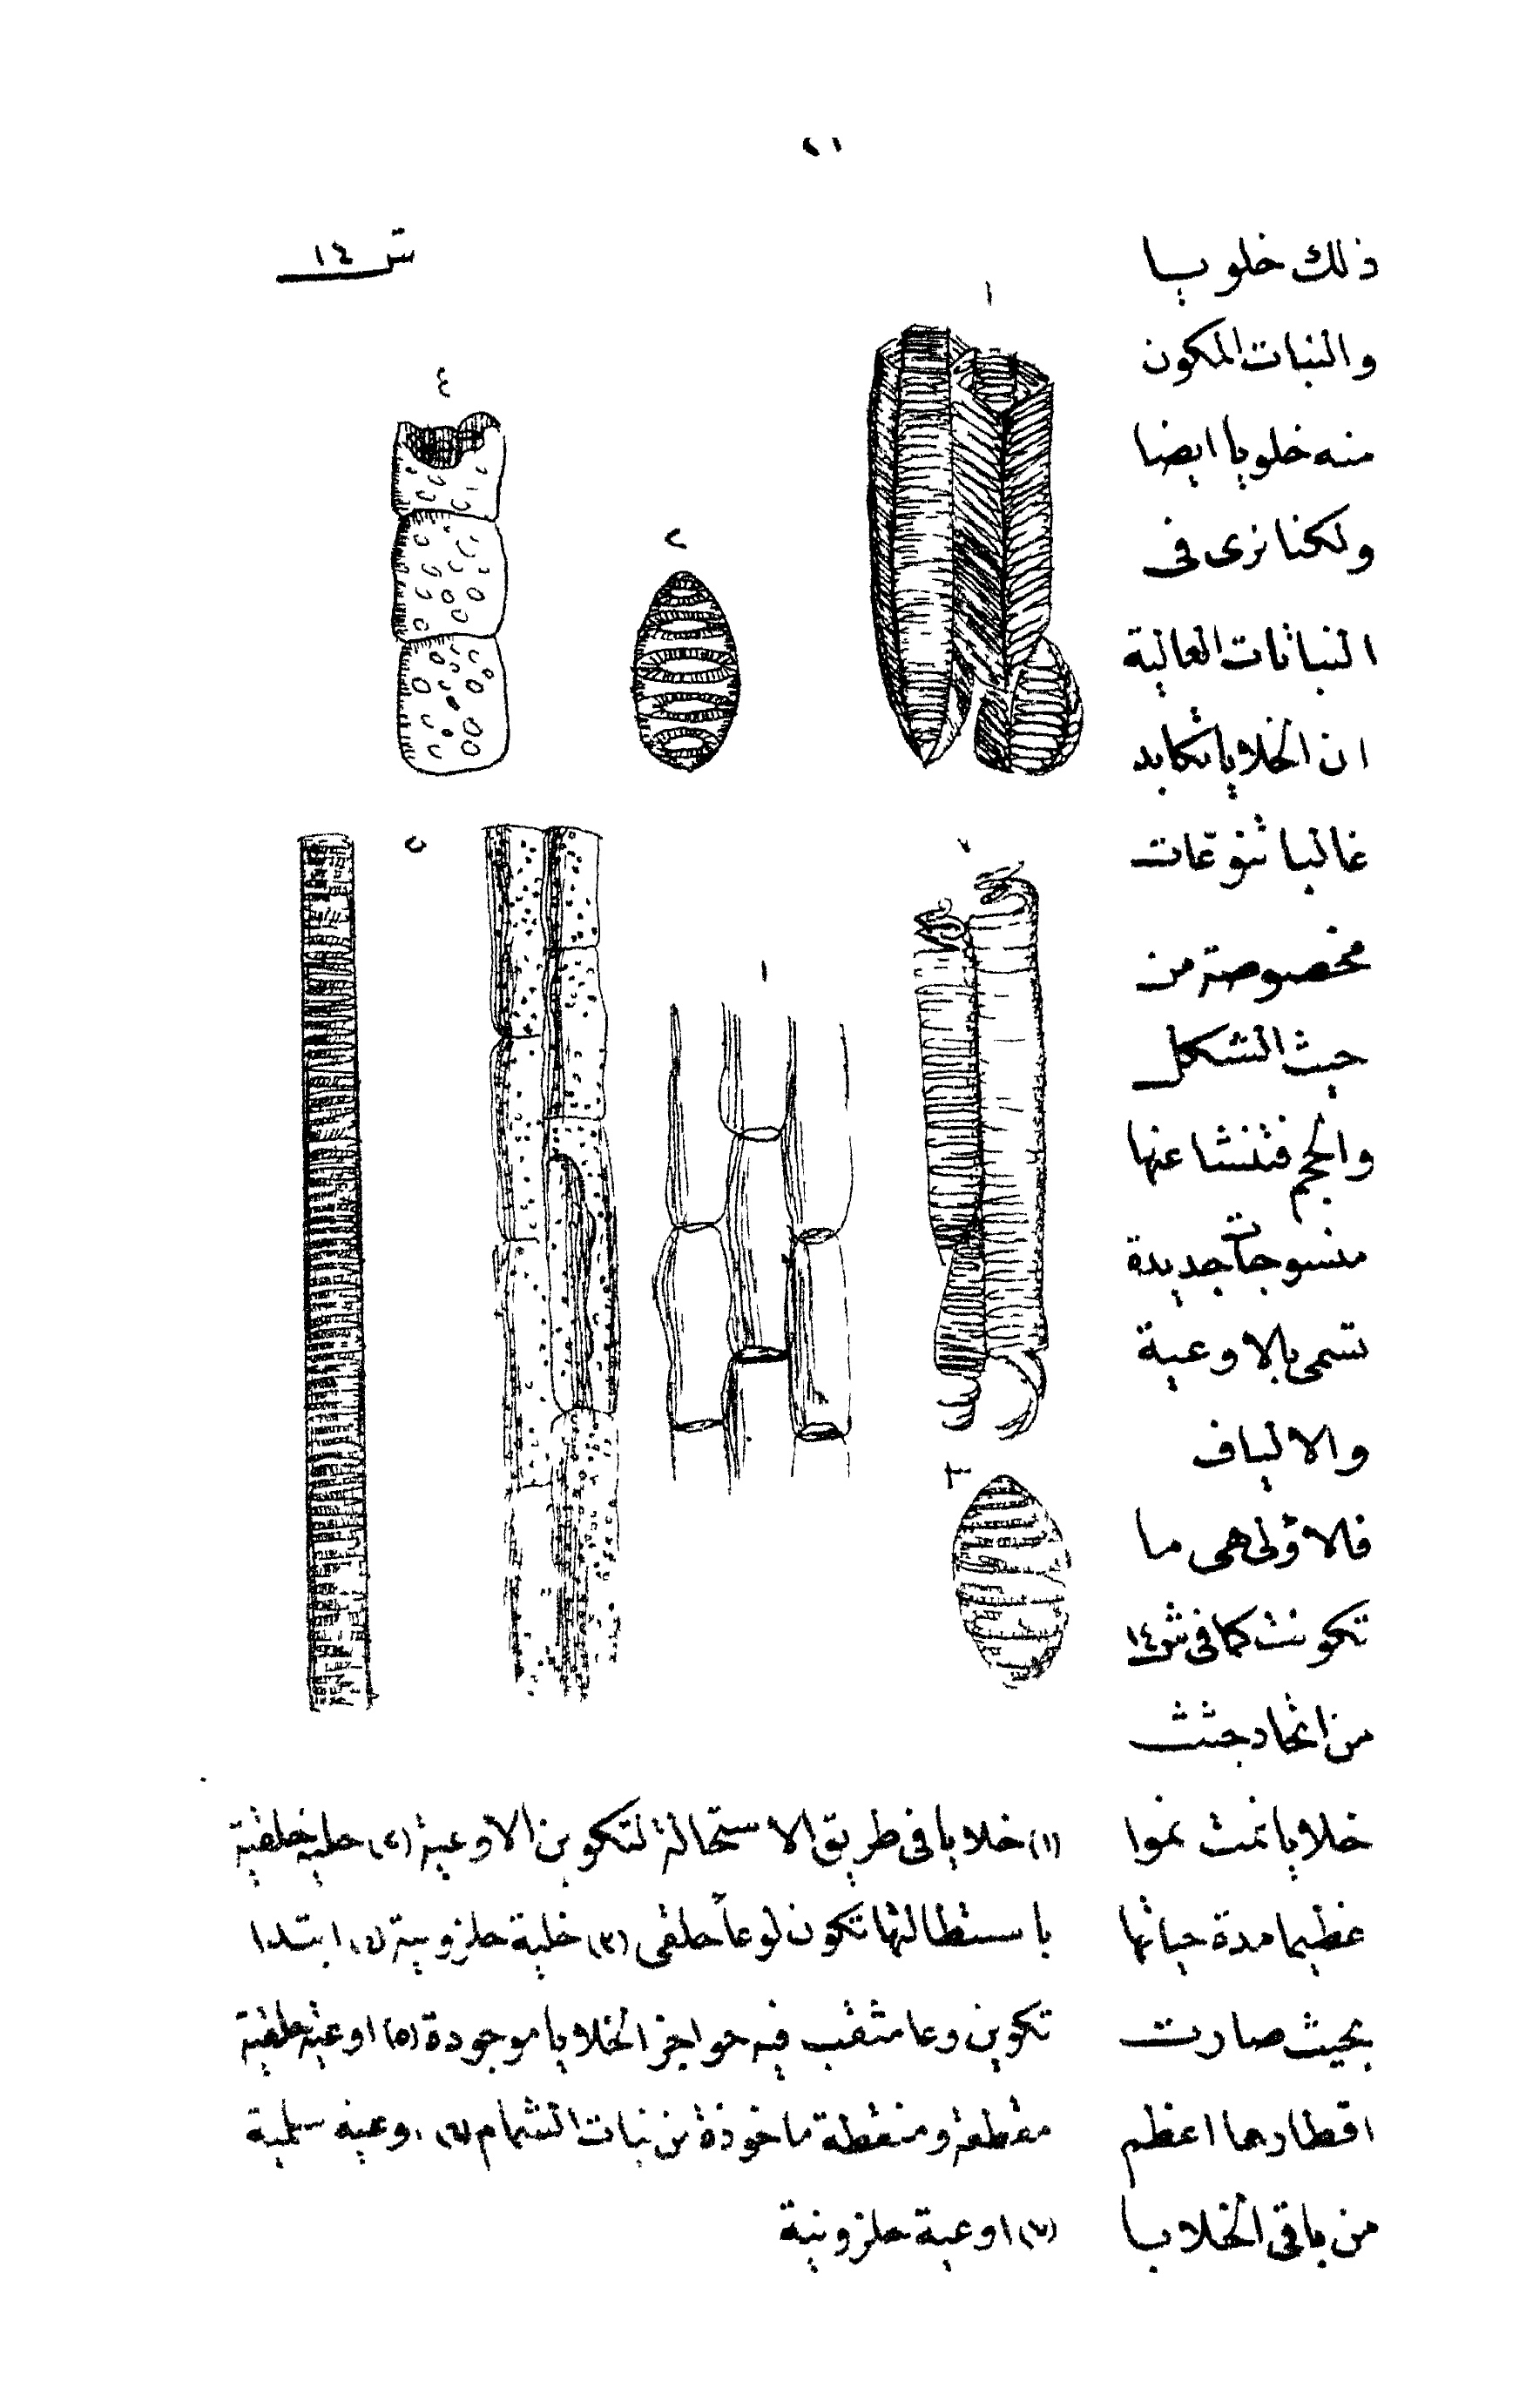 ٢١
ذلك خلويا
والنبات المكون
منه خلويا ايضا
ولكننا نرى فى
النباتات العالية
ان الخلايا تكابد
غالبا تنوّعات
مخصوصة من
حيث الشكل
والحجم فتنشا عنها
منسوجات جديدة
تسمى بالاوعية
والالياف
فالاولى هى ما
تكونت كما فى ش ١٤
من اتحاد جثث
خلايا نمت نموا
عظيما مدة حياتها
بحيث صارت
اقطارها اعظم
من باقى الخلايا
ش ١٤
١
٤
٢
٥
٧
١
٣
(١) خلايا فى طريق الاستحالة لتكوين الاوعية (٢) خلية حلقية
باستطالتها تكون نوعاً حلقى (٣) خلية حلزونية (٤) ابتدا
تكوين وعا مثقب فيه حواجز الخلايا موجودة (٥) اوعية حلقية
مقطعة ومنقطة ماخوذة من نبات الشمام (٦) اوعية سلمية
(٧) اوعية حلزونية